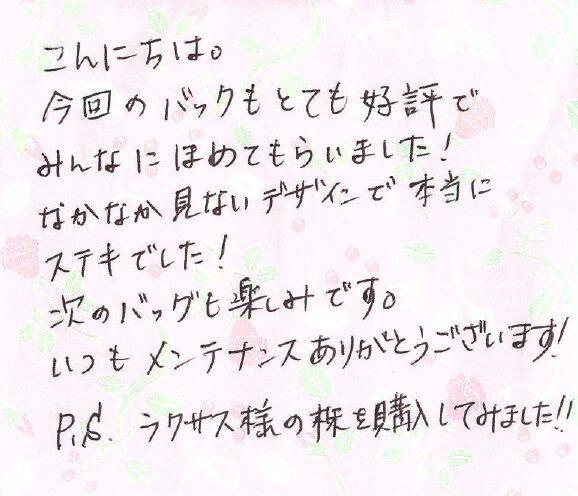 こんにちは。
今回のバックもとても好評で
みんなにほめてもらいました!
なかなか見ないデザインで本当に
ステキでした!
次のバッグも楽しみです。
いつもメンテナンスありがとうございます!
P.S. ラクサス様の株を購入してみました!!